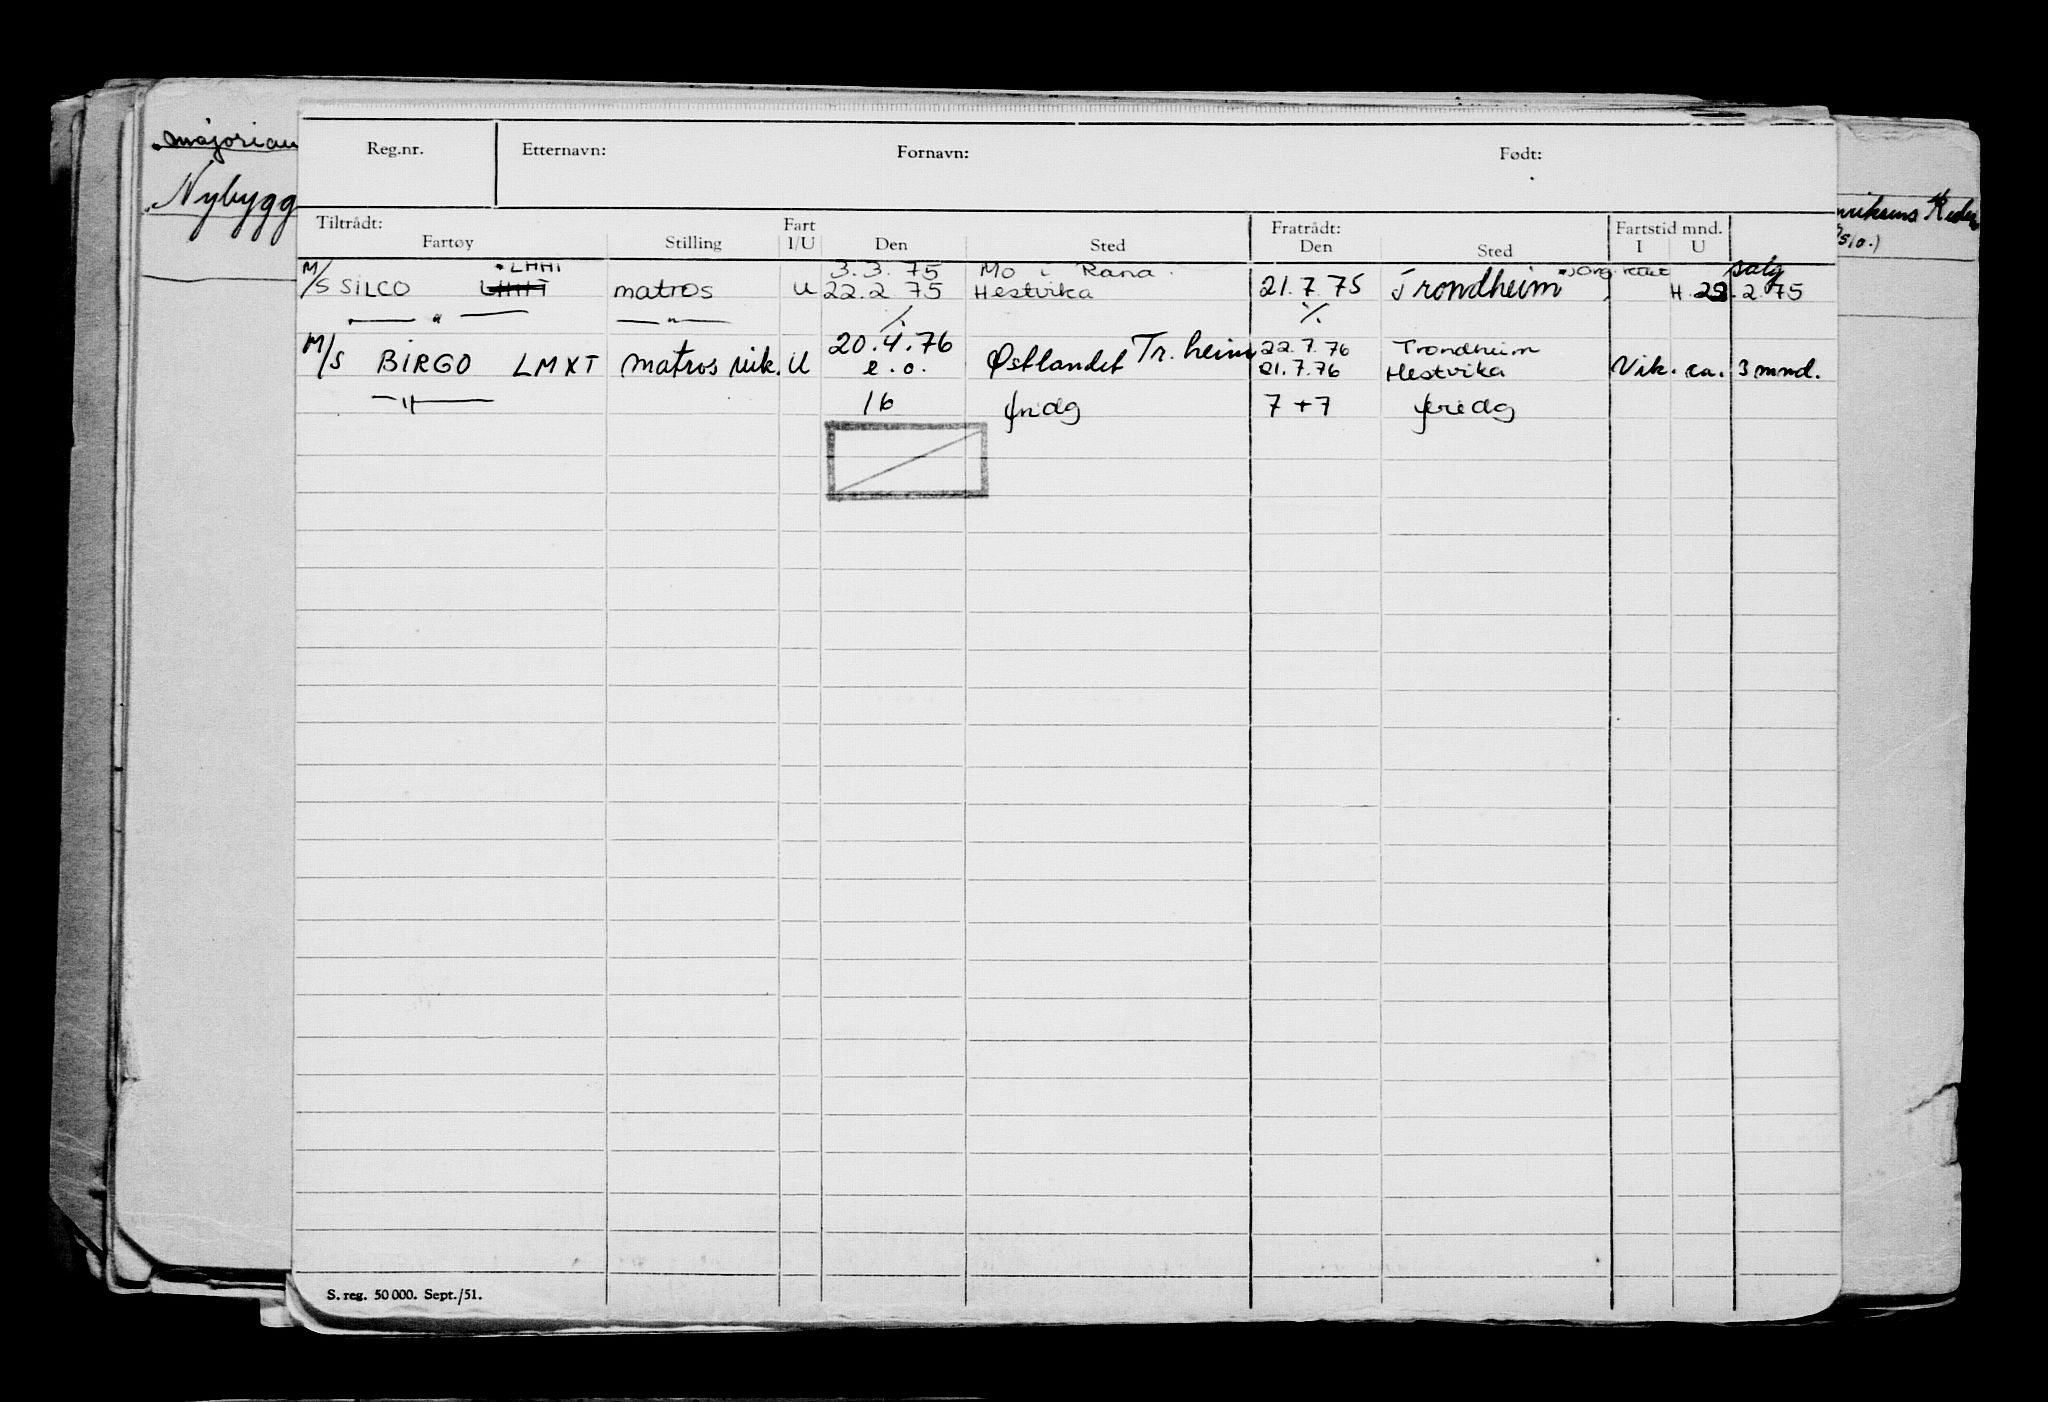 majorian
Nybygg
Reg.nr. Etternavn: Fornavn: Født:
Tiltrådt: Fartøy Stilling Fart I/U Den Sted Fratrådt: Den Sted Fartstid mnd. I U
LHHI 3.3.75 Mo i Rana. salg
M/S SILCO matros U 22.2 75 Hestvika 21.7.75 Trondheim H. 22.2.75
—"— —"— ⁒ ⁒
20.4.76 Tr.heim 22.7.76 Trondheim
M/S BIRGO LMXT matros vik. U e.o. Østlandet 21.7.76 Hestvika Vik. ca. 3 mnd.
—"— 16 7+7
S. reg. 50 000. Sept./51.